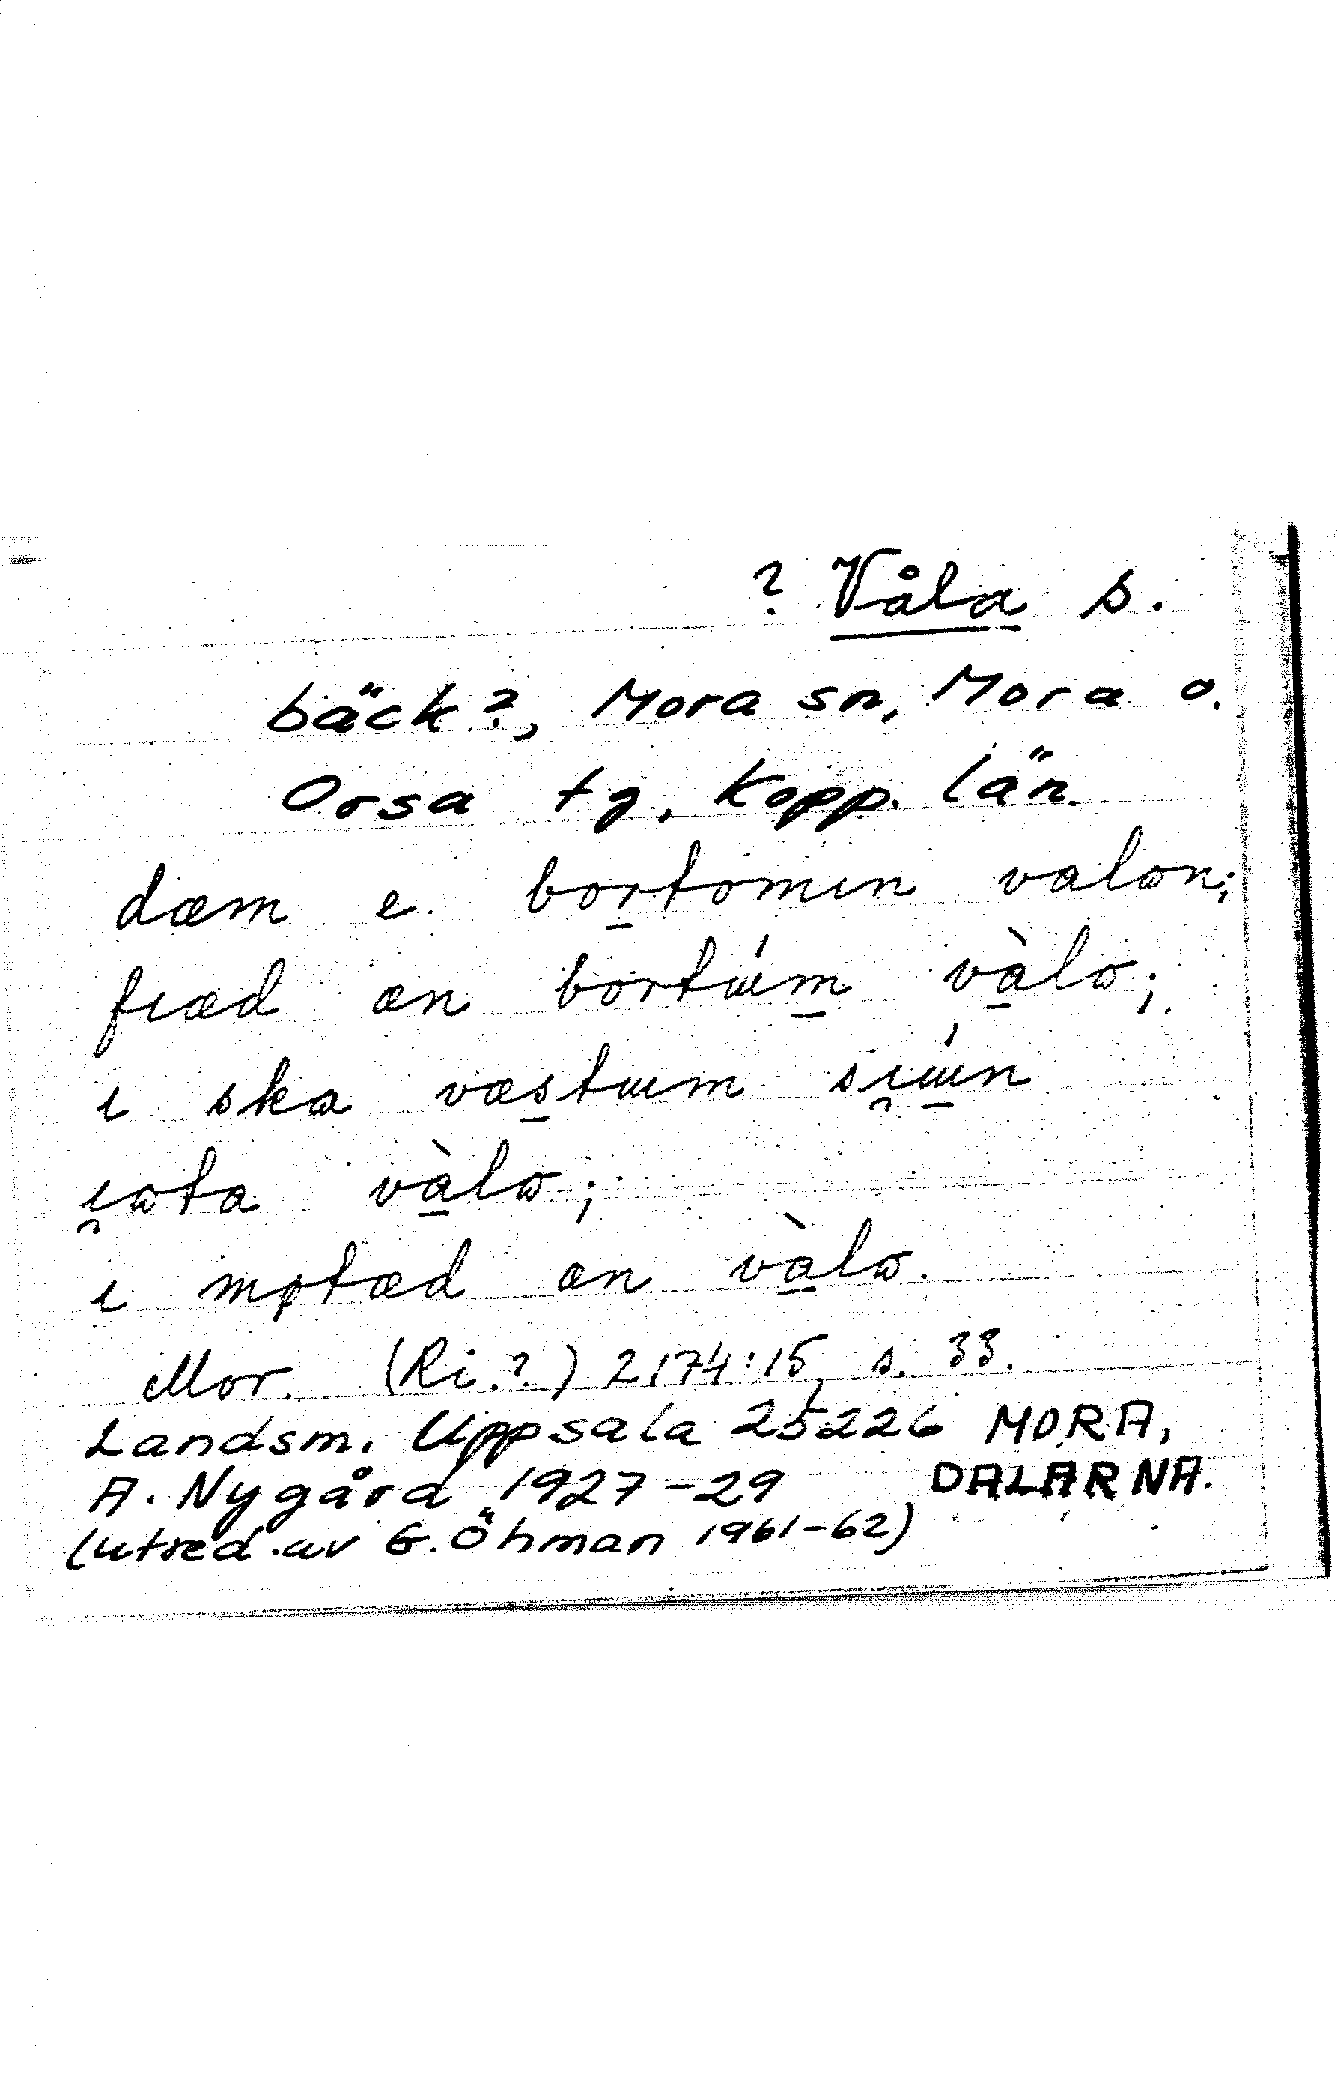 ? Våla s.
bäck?, Mora sn, Mora o.
Orsa tg, Kopp. län.
dæm e bortomın valon;
fıæd æn bortɯ́m vàlɷ;
ı ska væstɯm sı̯ɯ́n
ı̯ɷta vàlɷ;
ı møtæd æn vàlɷ.
Mor. (Ri.?) 2174:15, s. 33.
Landsm. Uppsala 25226 MORA,
A. Nygård 1927-29 DALARNA.
(utred. av G. Öhman 1961-62)